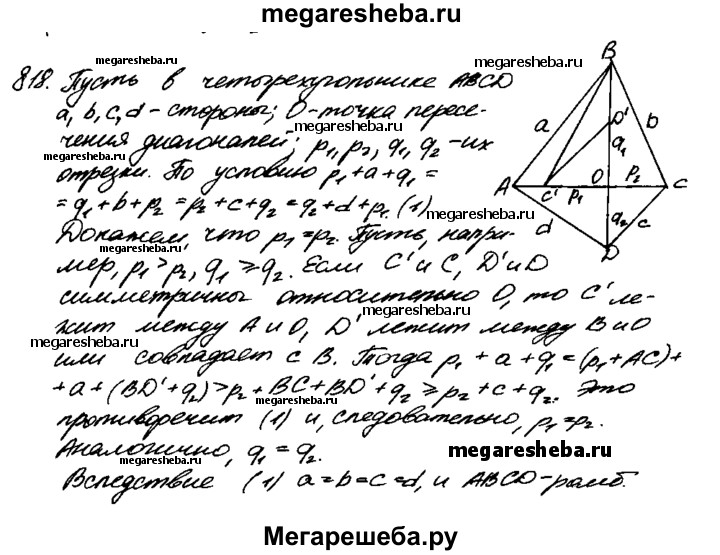 megaresheba.ru
818. Пусть в четырехугольнике ABCD
a, b, c, d – стороны; O – точка пересе-
чения диагоналей; p₁, p₂, q₁, q₂ – их
отрезки. По условию p₁ + a + q₁ =
= q₁ + b + p₂ = p₂ + c + q₂ = q₂ + d + p₁. (1)
Докажем, что p₁ = p₂. Пусть, напри-
мер, p₁ > p₂, q₁ ⩾ q₂. Если C' и C, D' и D
симметричны относительно O, то C' ле-
жит между A и O, D' лежит между B и O
или совпадает с B. Тогда p₁ + a + q₁ = (p₁ + AC) +
+ a + (BD' + q₂) > p₂ + BC + BD' + q₂ ⩾ p₂ + c + q₂. Это
противоречит (1) и, следовательно, p₁ = p₂.
Аналогично, q₁ = q₂.
Вследствие (1) a = b = c = d, и ABCD – ромб.
B
a
D'
b
q₁
A
C'
p₁
O
p₂
C
d
q₂
c
D
megaresheba.ru
megaresheba.ru
megaresheba.ru
megaresheba.ru
megaresheba.ru
megaresheba.ru
megaresheba.ru
megaresheba.ru
megaresheba.ru
megaresheba.ru
megaresheba.ru
Мегарешеба.ру